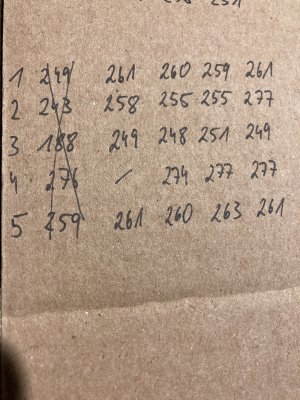 251
1 249 261 260 259 261
2 243 258 255 255 277
3 188 249 248 251 249
4 276 / 274 277 277
5 259 261 260 263 261